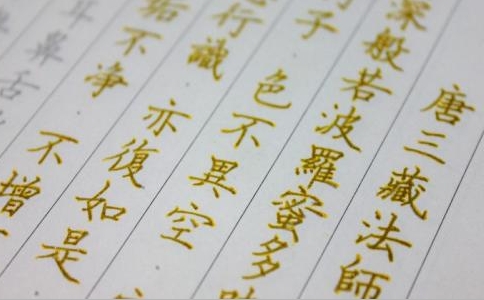 唐三藏法師
深般若波羅蜜多時
子 色不異空
行識 亦復如是
垢不净 不增
耳鼻舌